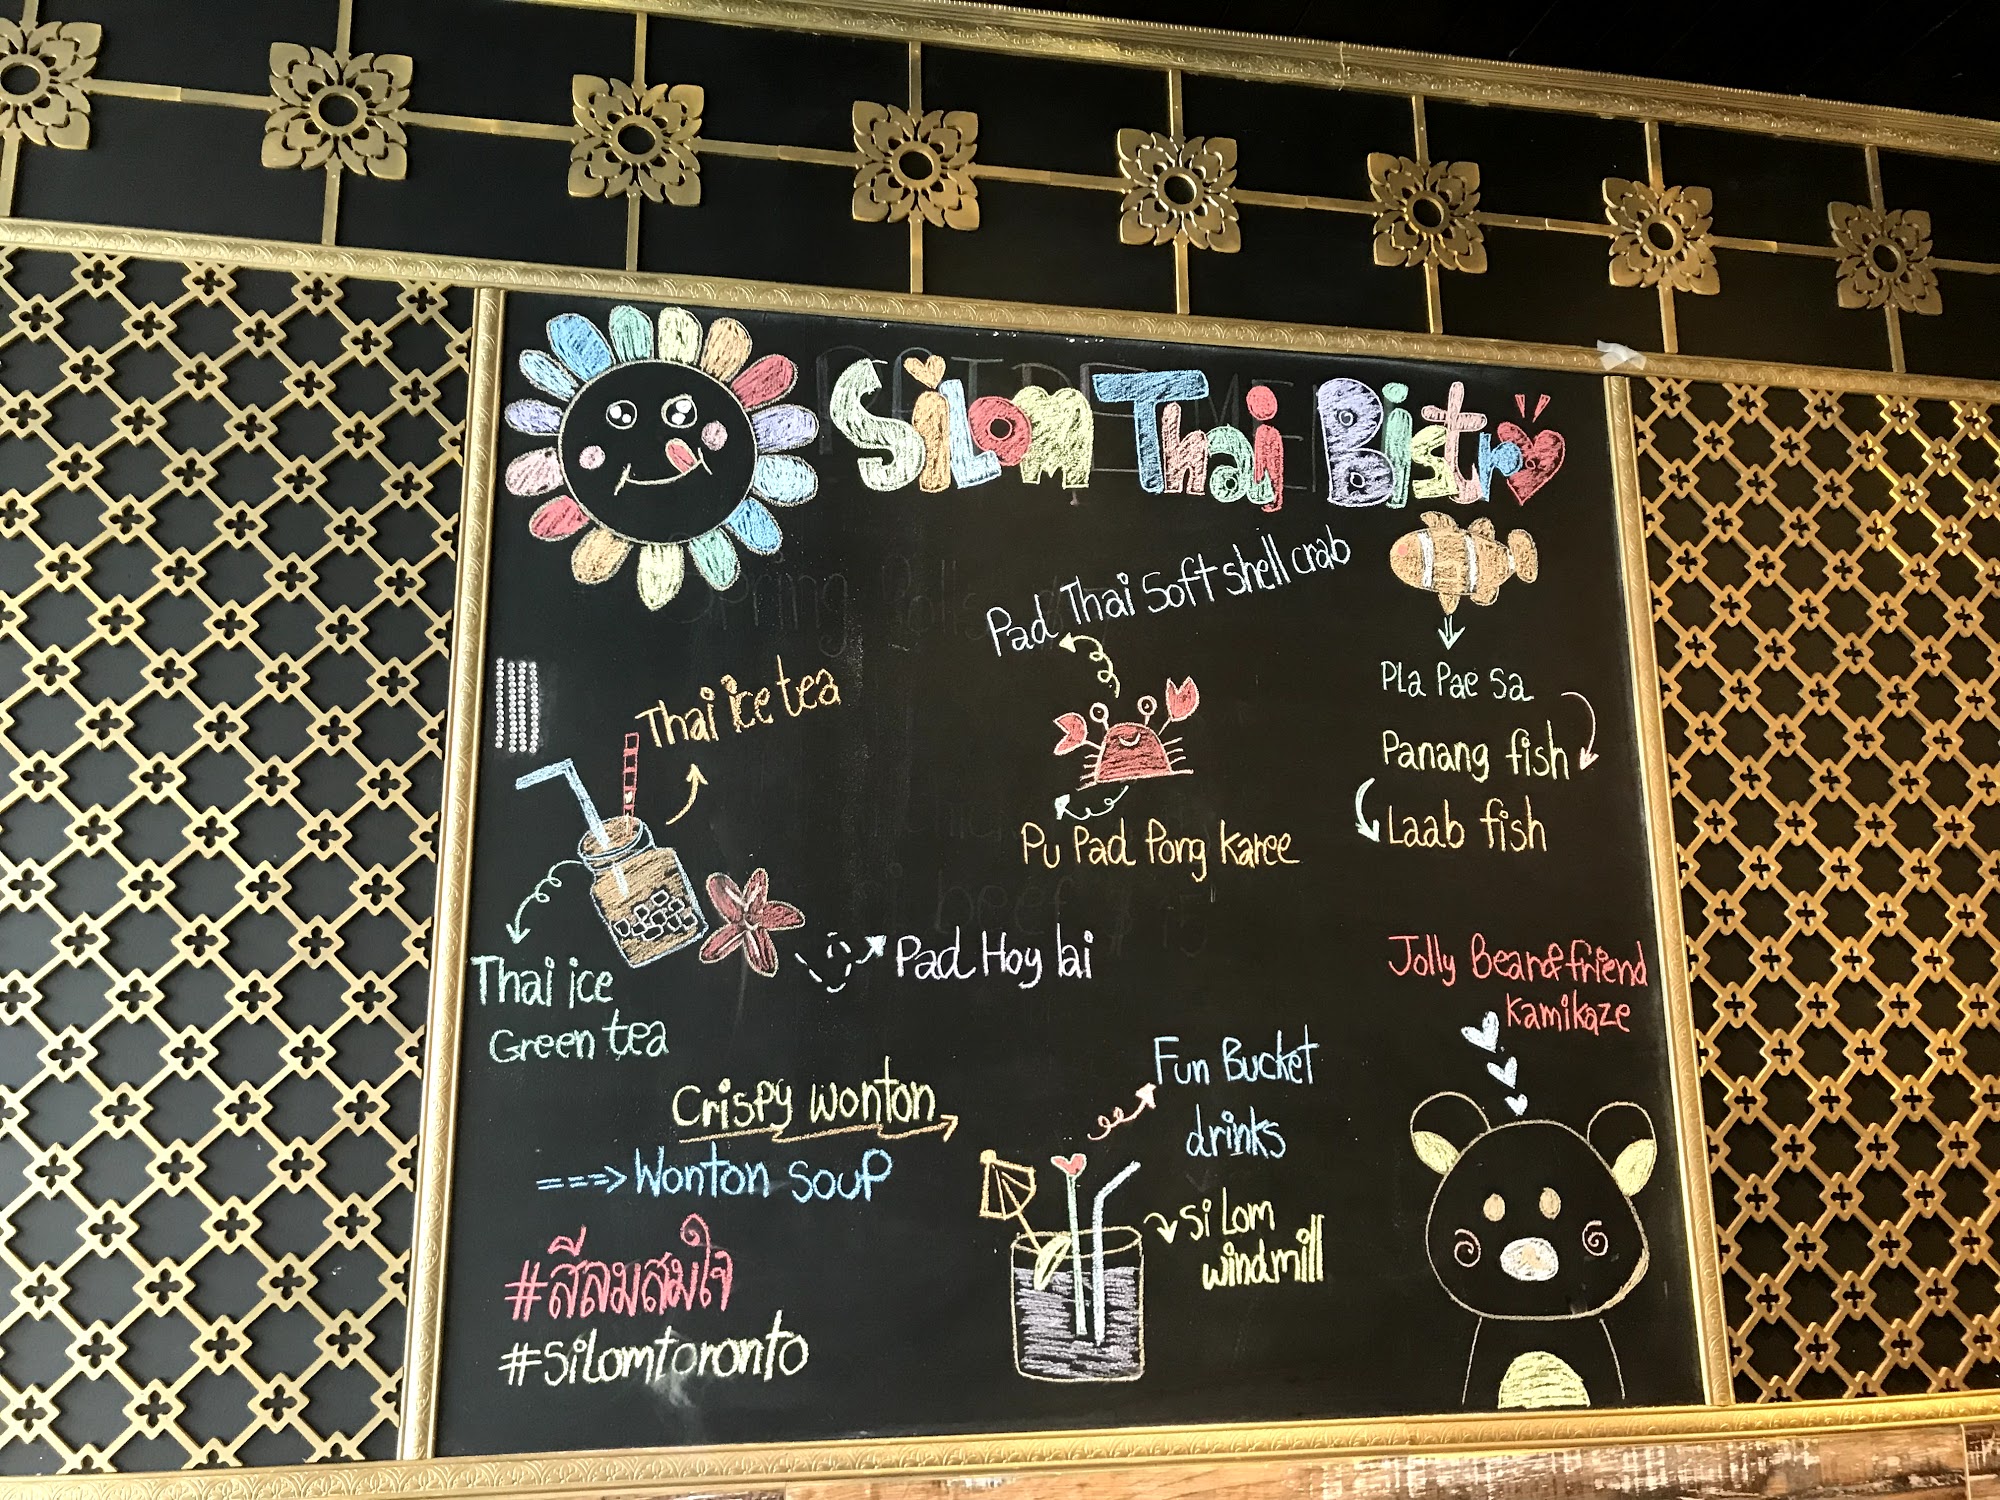 Silom Thai Bistro
Pad Thai Soft shell crab
Pla Pae Sa
Thai ice tea
Panang fish
Laab fish
Pu Pad Pong Karee
Pad Hoy lai
Jolly Bear&friend
Kamikaze
Thai ice
Green tea
Fun Bucket
drinks
Crispy wonton
===> Wonton soup
Si Lom
windmill
#สีลมสมใจ
#Silomtoronto